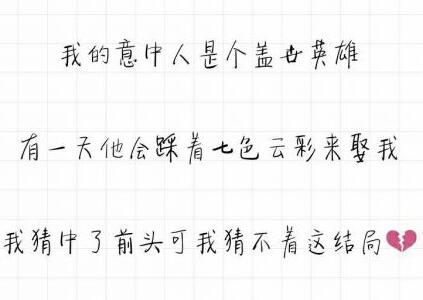 我的意中人是个盖世英雄
有一天他会踩着七色云彩来娶我
我猜中了前头可我猜不着这结局💔